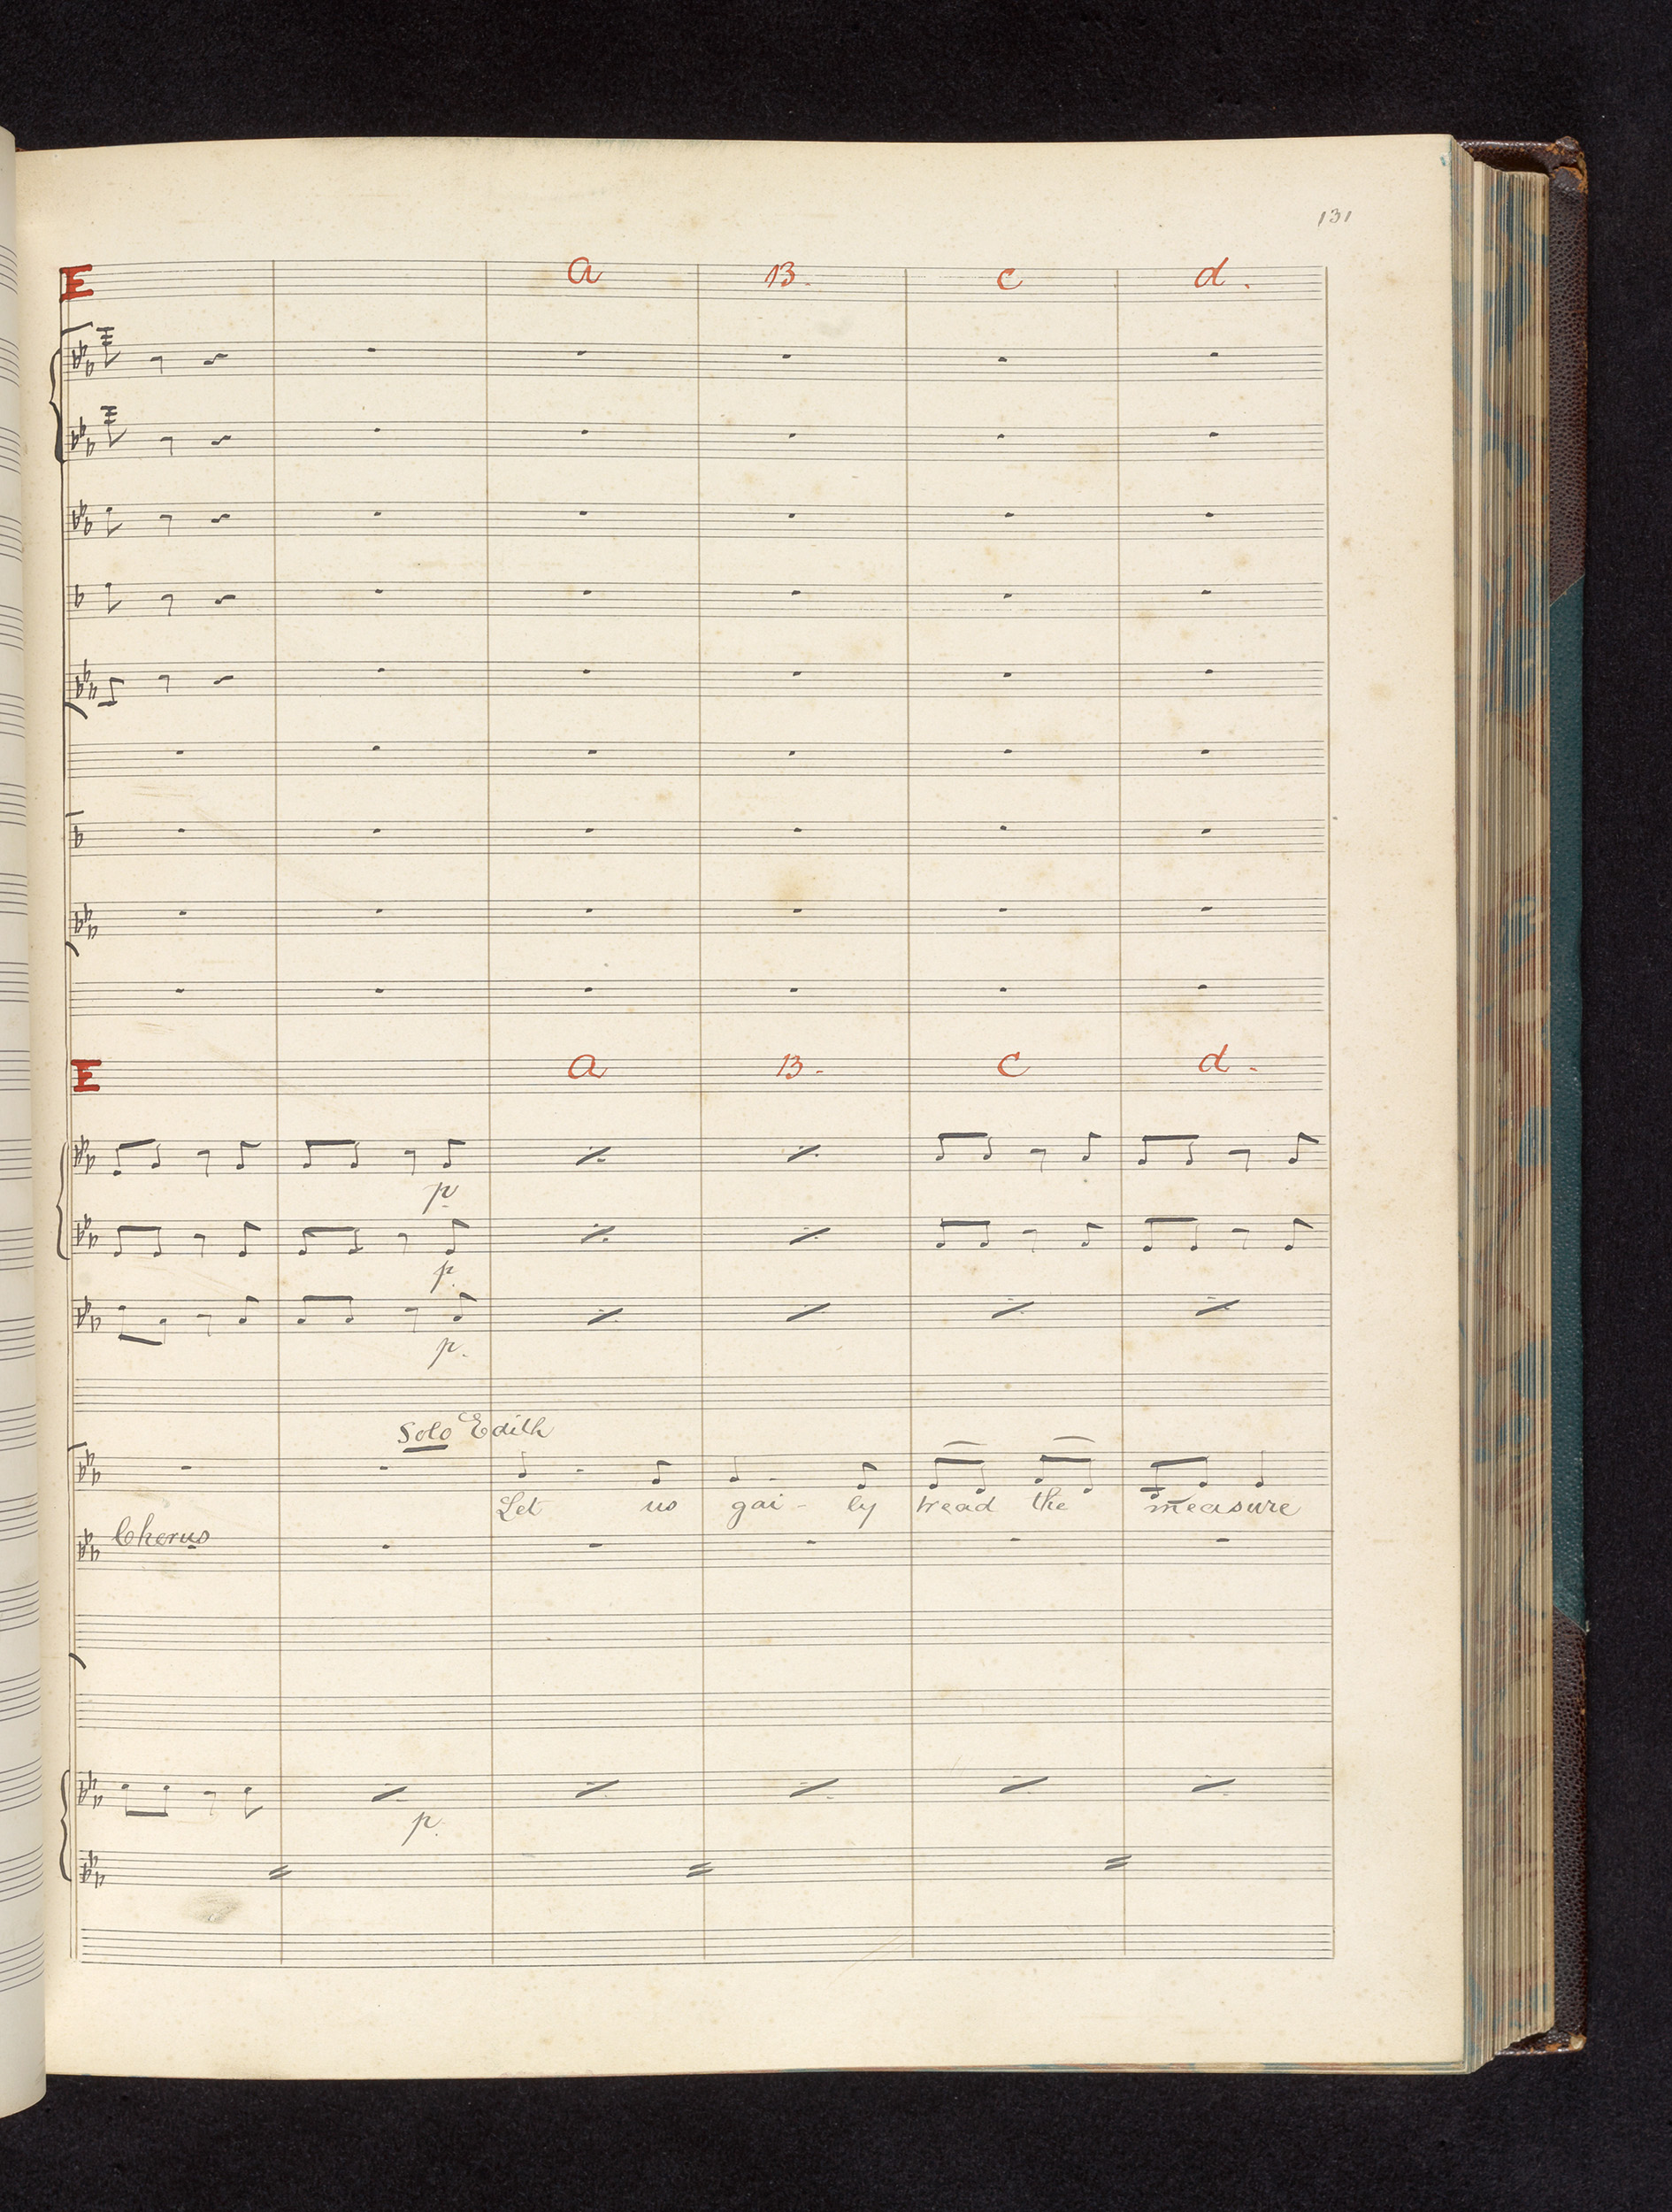 131
E a B. c d.
E a B. c d.
p
p.
p.
Solo Edith
Let us gai - ly tread the measure
Chorus
p.